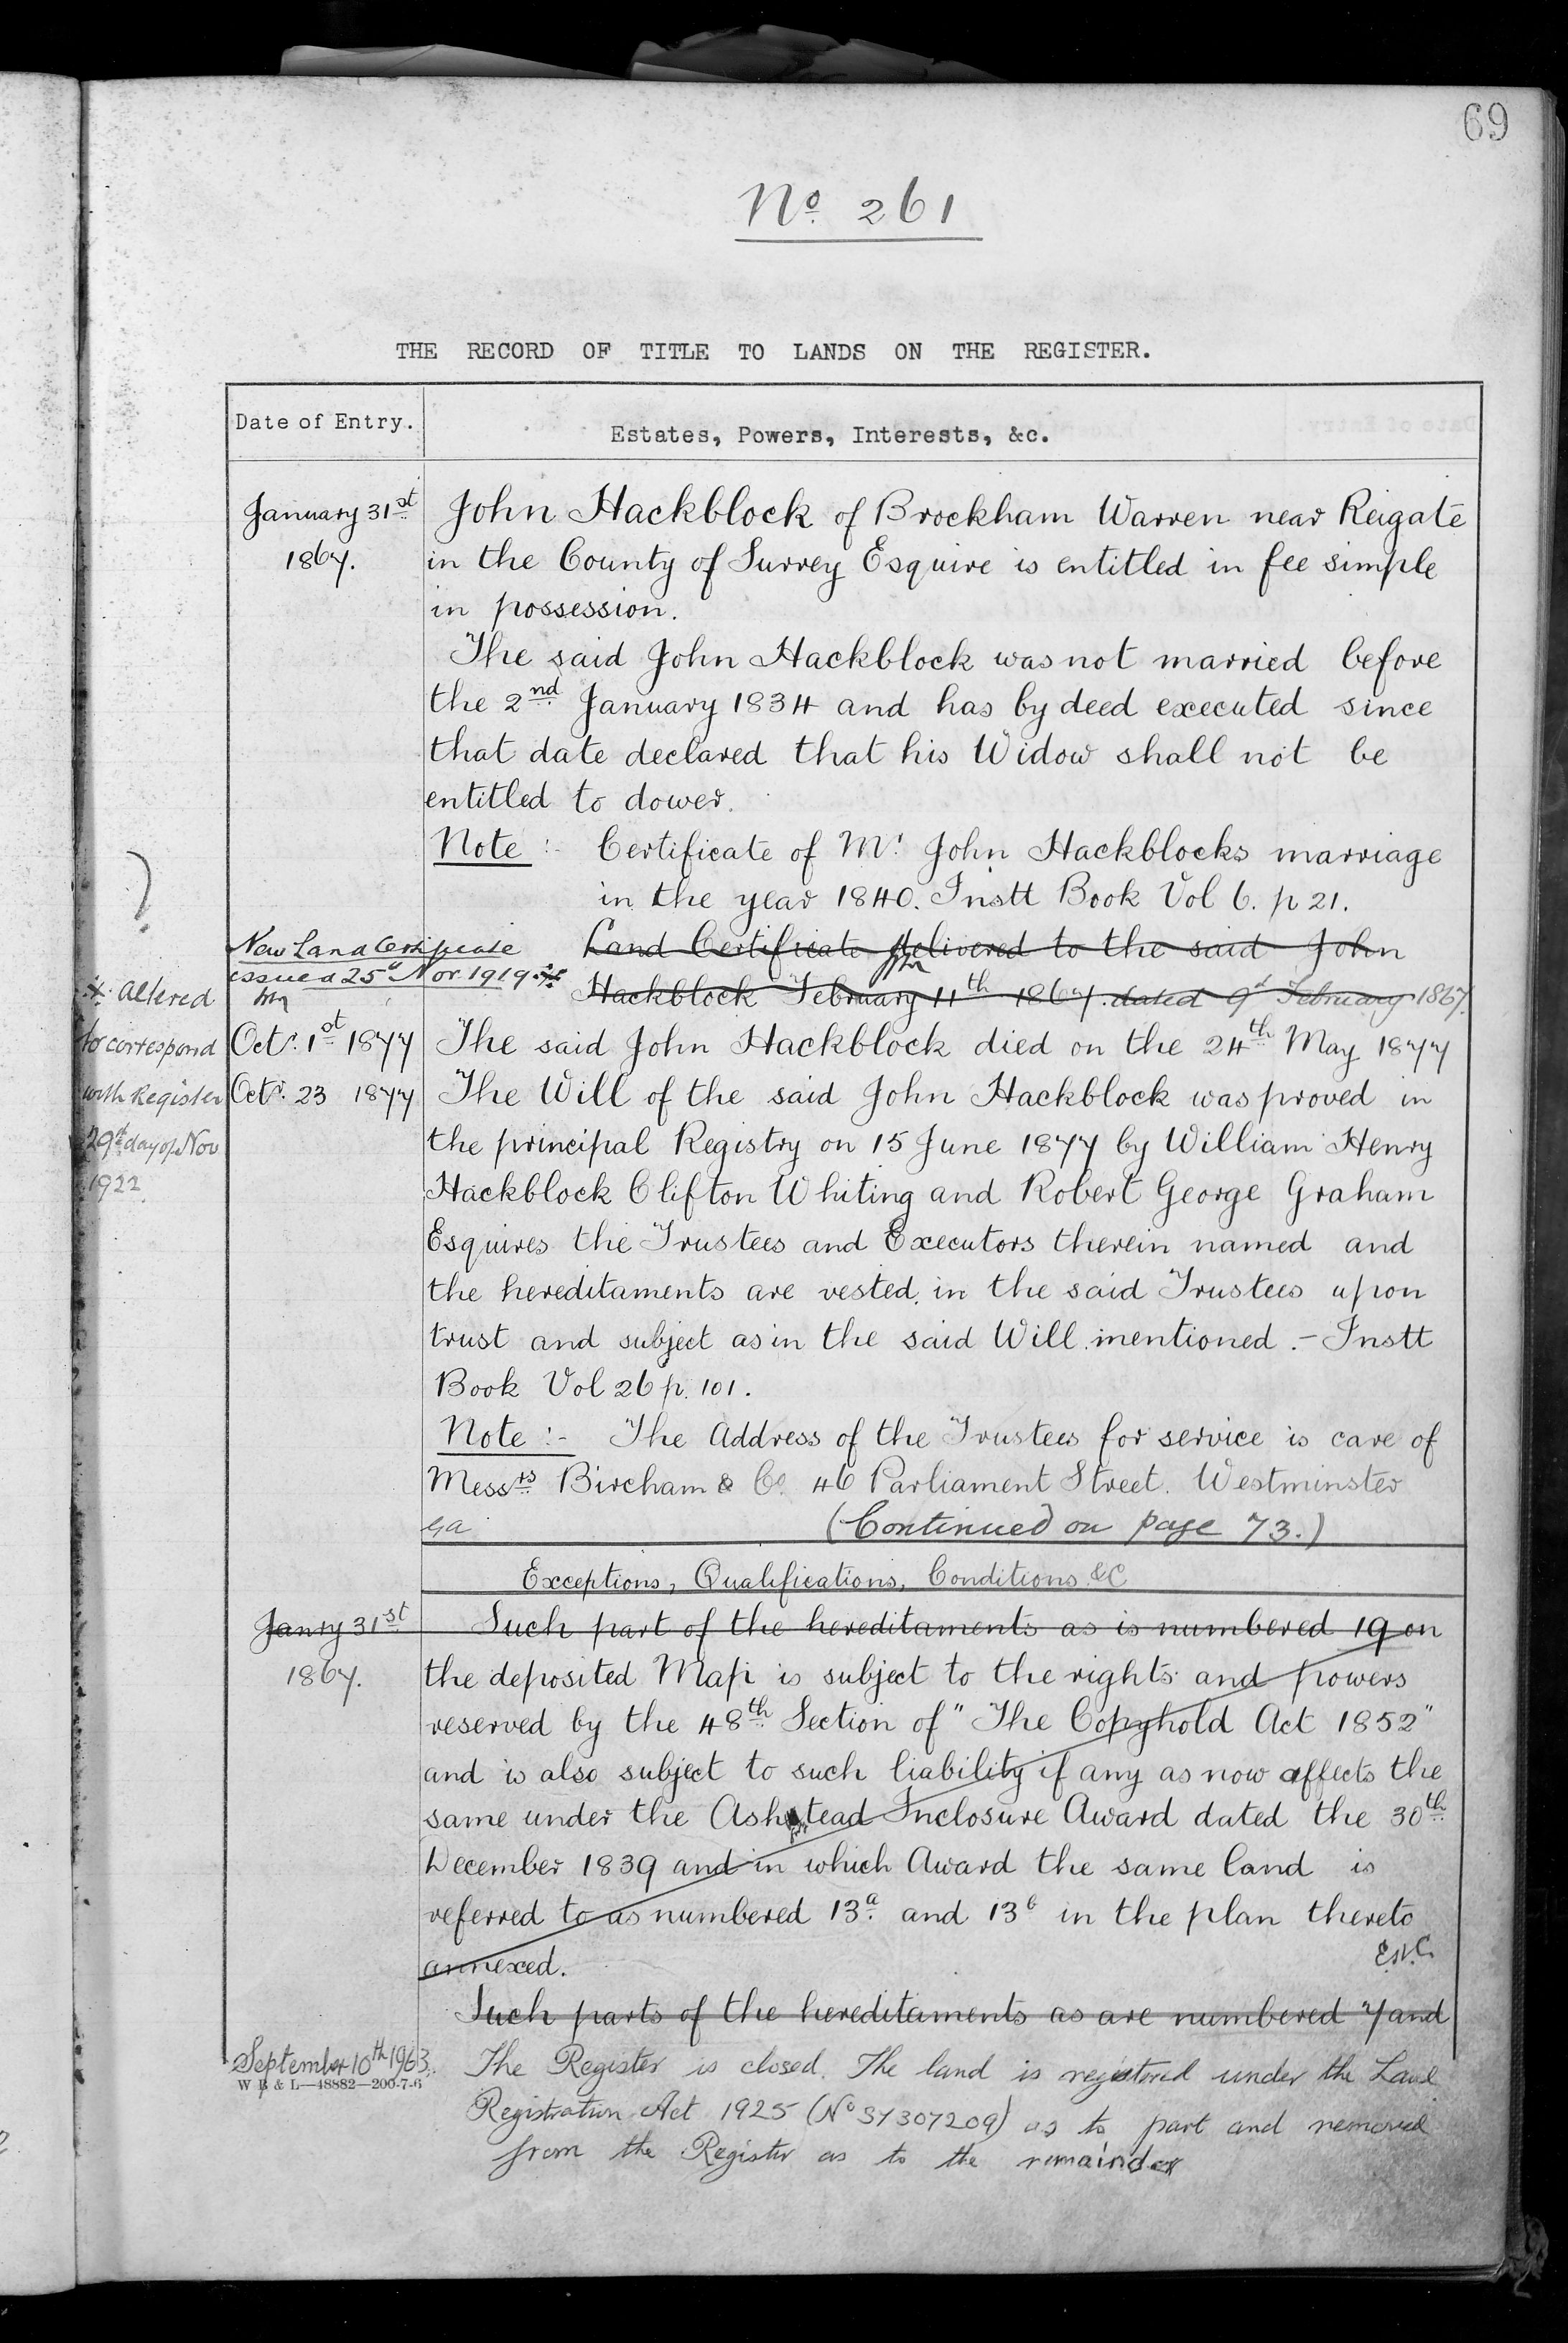 69
No. 261
THE RECORD OF TITLE TO LANDS ON THE REGISTER.
Date of Entry.
Estates, Powers, Interests, &c.
January 31st
1867.
John Hackblock of Brockham Warren near Reigate
in the County of Surrey Esquire is entitled in fee simple
in possession.
The said John Hackblock was not married before
the 2nd January 1834 and has by deed executed since
that date declared that his Widow shall not be
entitled to dower.
Note :- Certificate of Mr. John Hackblocks marriage
in the year 1840. Instt Book Vol 6. p 21.
New Land Certificate
issued 25th Nor. 1919.*
Land Certificate delivered to the said John
Hackblock February 11th 1867. dated 9th February 1867.
* Altered
to correspond
with Register
29th day of Nov
1922
Oct. 1st 1877
The said John Hackblock died on the 24th May 1877
Octr. 23 1877
The Will of the said John Hackblock was proved in
the principal Registry on 15 June 1877 by William Henry
Hackblock Clifton Whiting and Robert George Graham
Esquires the Trustees and Executors therein named and
the hereditaments are vested in the said Trustees upon
trust and subject as in the said Will mentioned. - Instt
Book Vol 26 p. 101.
Note :- The Address of the Trustees for service is care of
Messrs Bircham & Co. 46 Parliament Street. Westminster
(Continued on page 73.)
Exceptions, Qualifications, Conditions &C
Janry 31st
1867.
Such part of the hereditaments as is numbered 19 on
the deposited Map is subject to the rights and powers
reserved by the 48th Section of "The Copyhold Act 1852"
and is also subject to such liability if any as now affects the
same under the Ashtead Inclosure Award dated the 30th
December 1839 and in which Award the same land is
referred to as numbered 13a. and 13b in the plan thereto
annexed.
Such parts of the hereditaments as are numbered 7 and
September 10th 1963.
W B & L—48882—200-7-6
The Register is closed. The land is registered under the Land
Registration Act 1925 (No SY307209) as to part and removed
from the Register as to the remainder